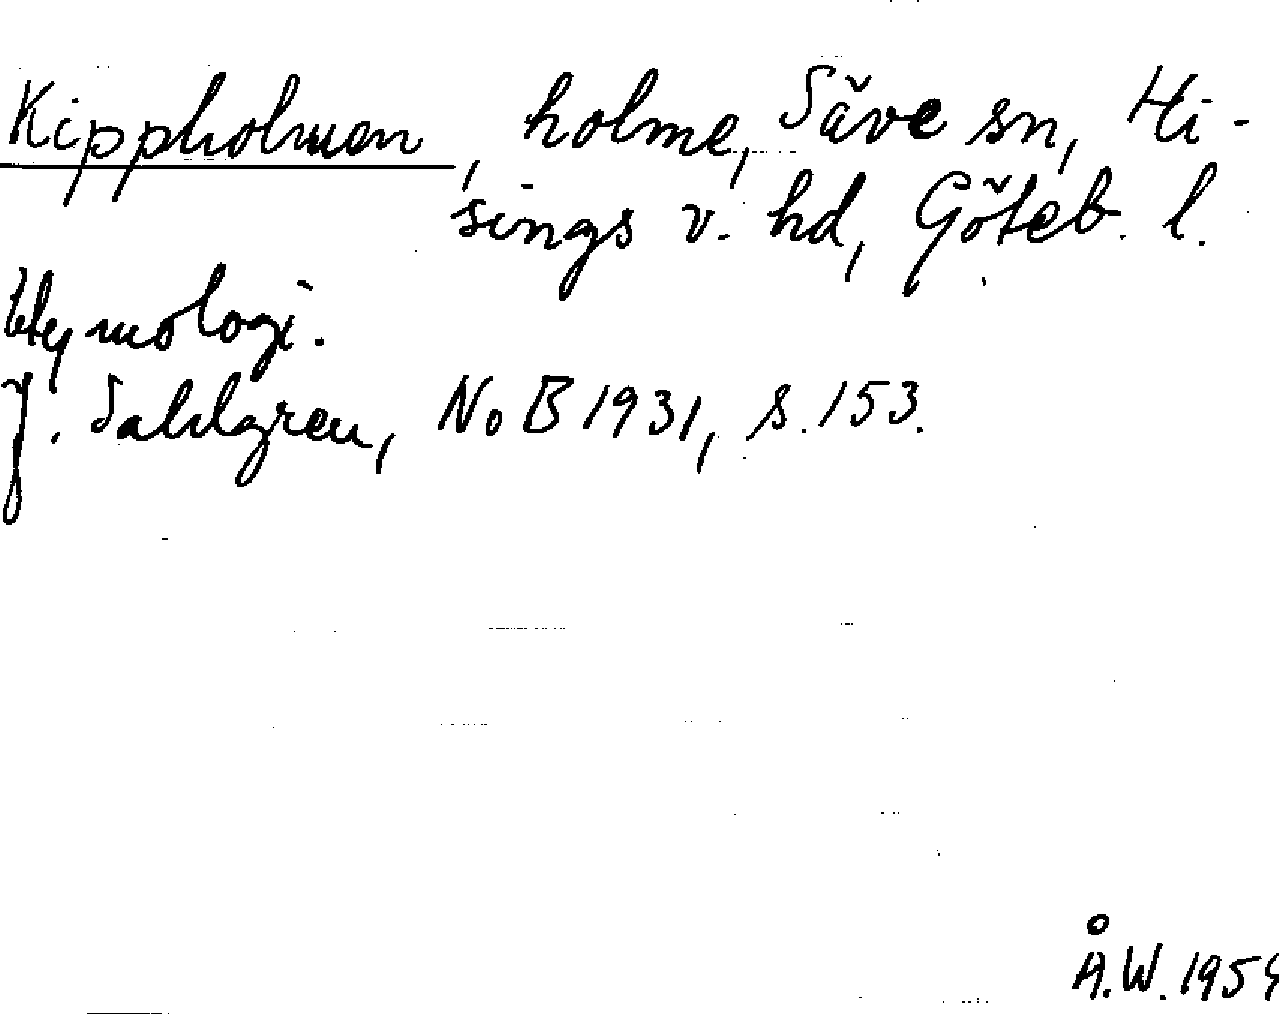 Kippholmen, holme, Säve sn, Hi-
sings v. hd, Göteb. l.
Etymologi.
J. Sahlgren, NoB 1931, s. 153.
Å.W. 195